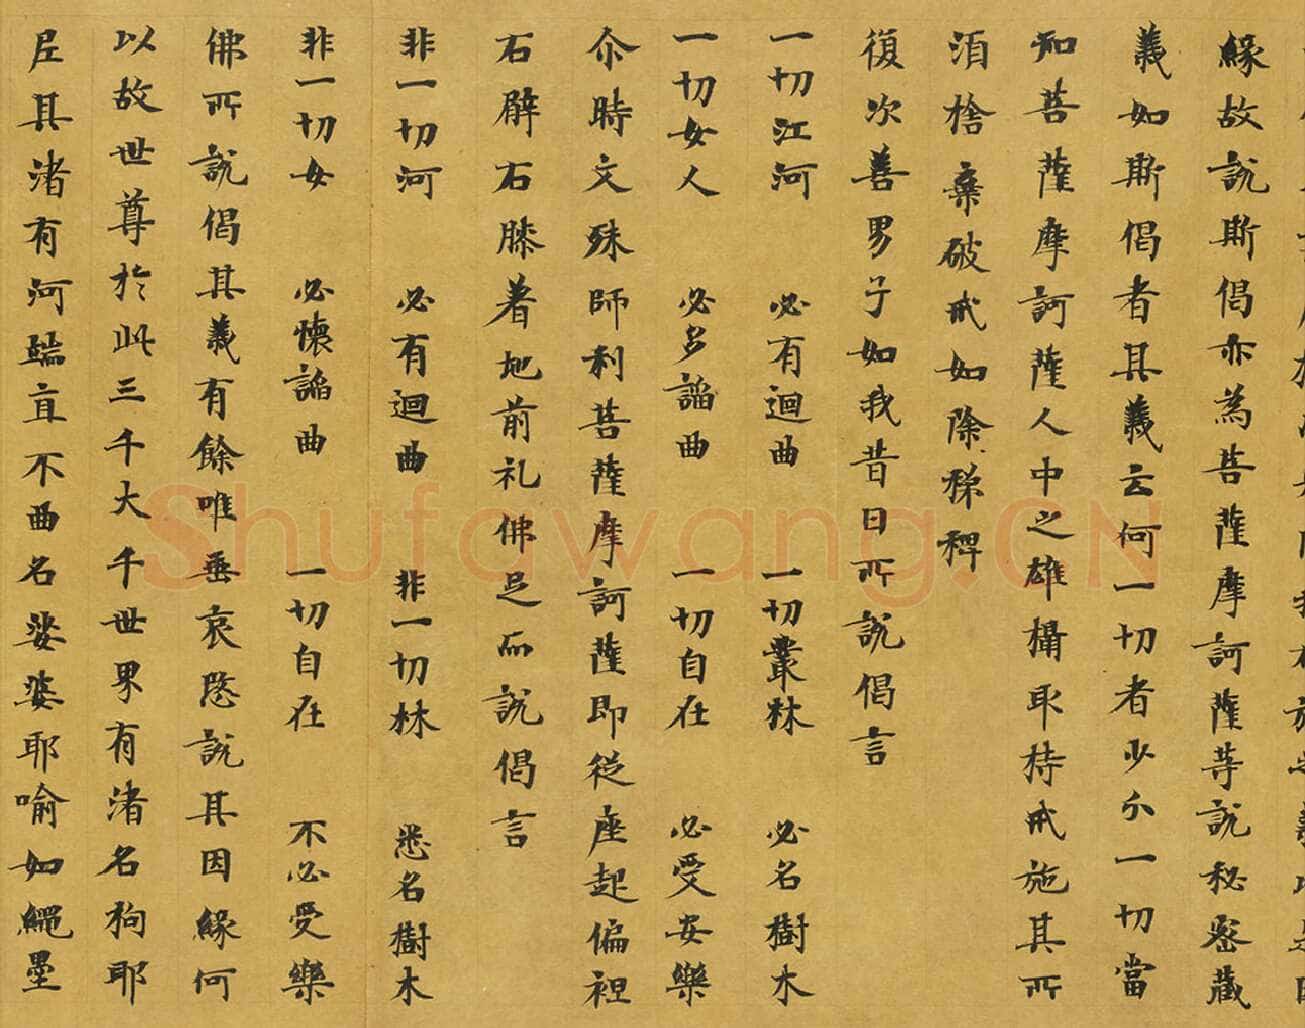 緣故說斯偈亦為菩薩摩訶薩等說秘密藏
義如斯偈者其義云何一切者少分一切當
知菩薩摩訶薩人中之雄攝取持戒施其所
須捨棄破戒如除稊稗
復次善男子如我昔日所說偈言
一切江河 必有迴曲 一切叢林 必名樹木
一切女人 必多諂曲 一切自在 必受安樂
尒時文殊師利菩薩摩訶薩即從座起偏袒
右髀右膝着地前礼佛足而說偈言
非一切河 必有迴曲 非一切林 悉名樹木
非一切女 必懷諂曲 一切自在 不必受樂
佛所說偈其義有餘唯垂哀愍說其因緣何
以故世尊於此三千大千世界有渚名拘耶
尼其渚有河端直不曲名娑婆耶喻如繩墨
Shufawang.CN